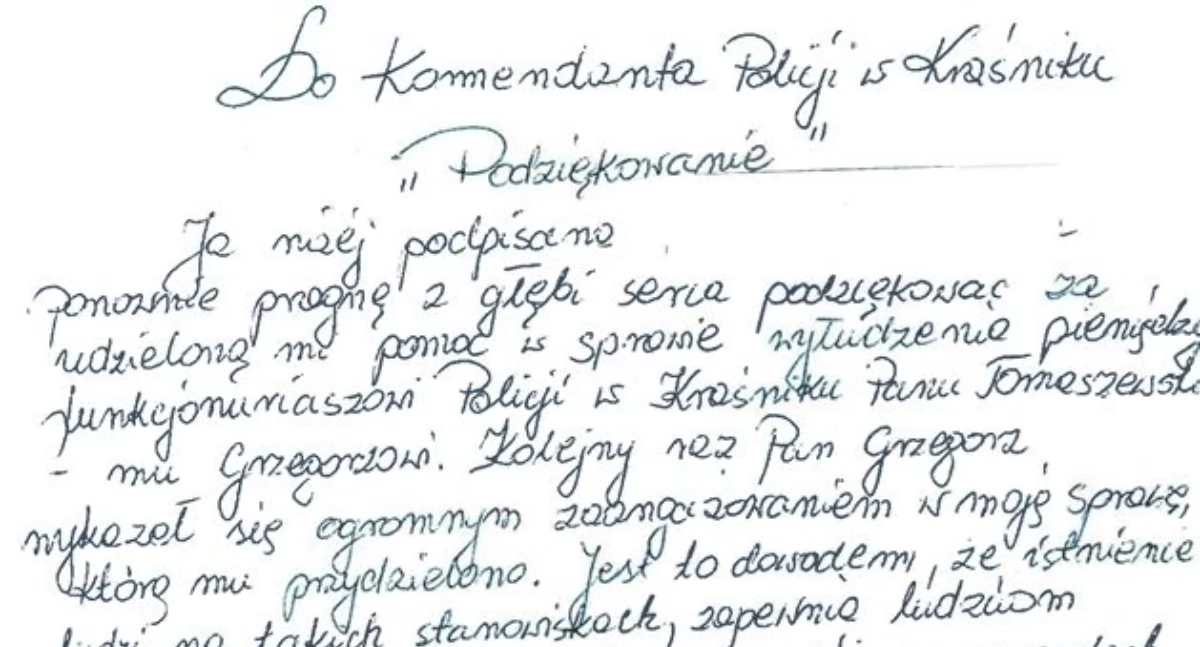 Do Komendanta Policji w Kraśniku
„Podziękowanie"
Ja niżej podpisana
ponownie pragnę z głębi serca podziękować za
udzieloną mi pomoc w sprawie wyłudzenia pieniędzy
funkcjonariuszowi Policji w Kraśniku Panu Tomaszewskie
- mu Grzegorzowi. Kolejny raz Pan Grzegorz
wykazał się ogromnym zaangażowaniem w moję sprawę,
którą mu przydzielono. Jest to dowodem, że istnienie
ludzi na takich stanowiskach, zapewnia ludziom